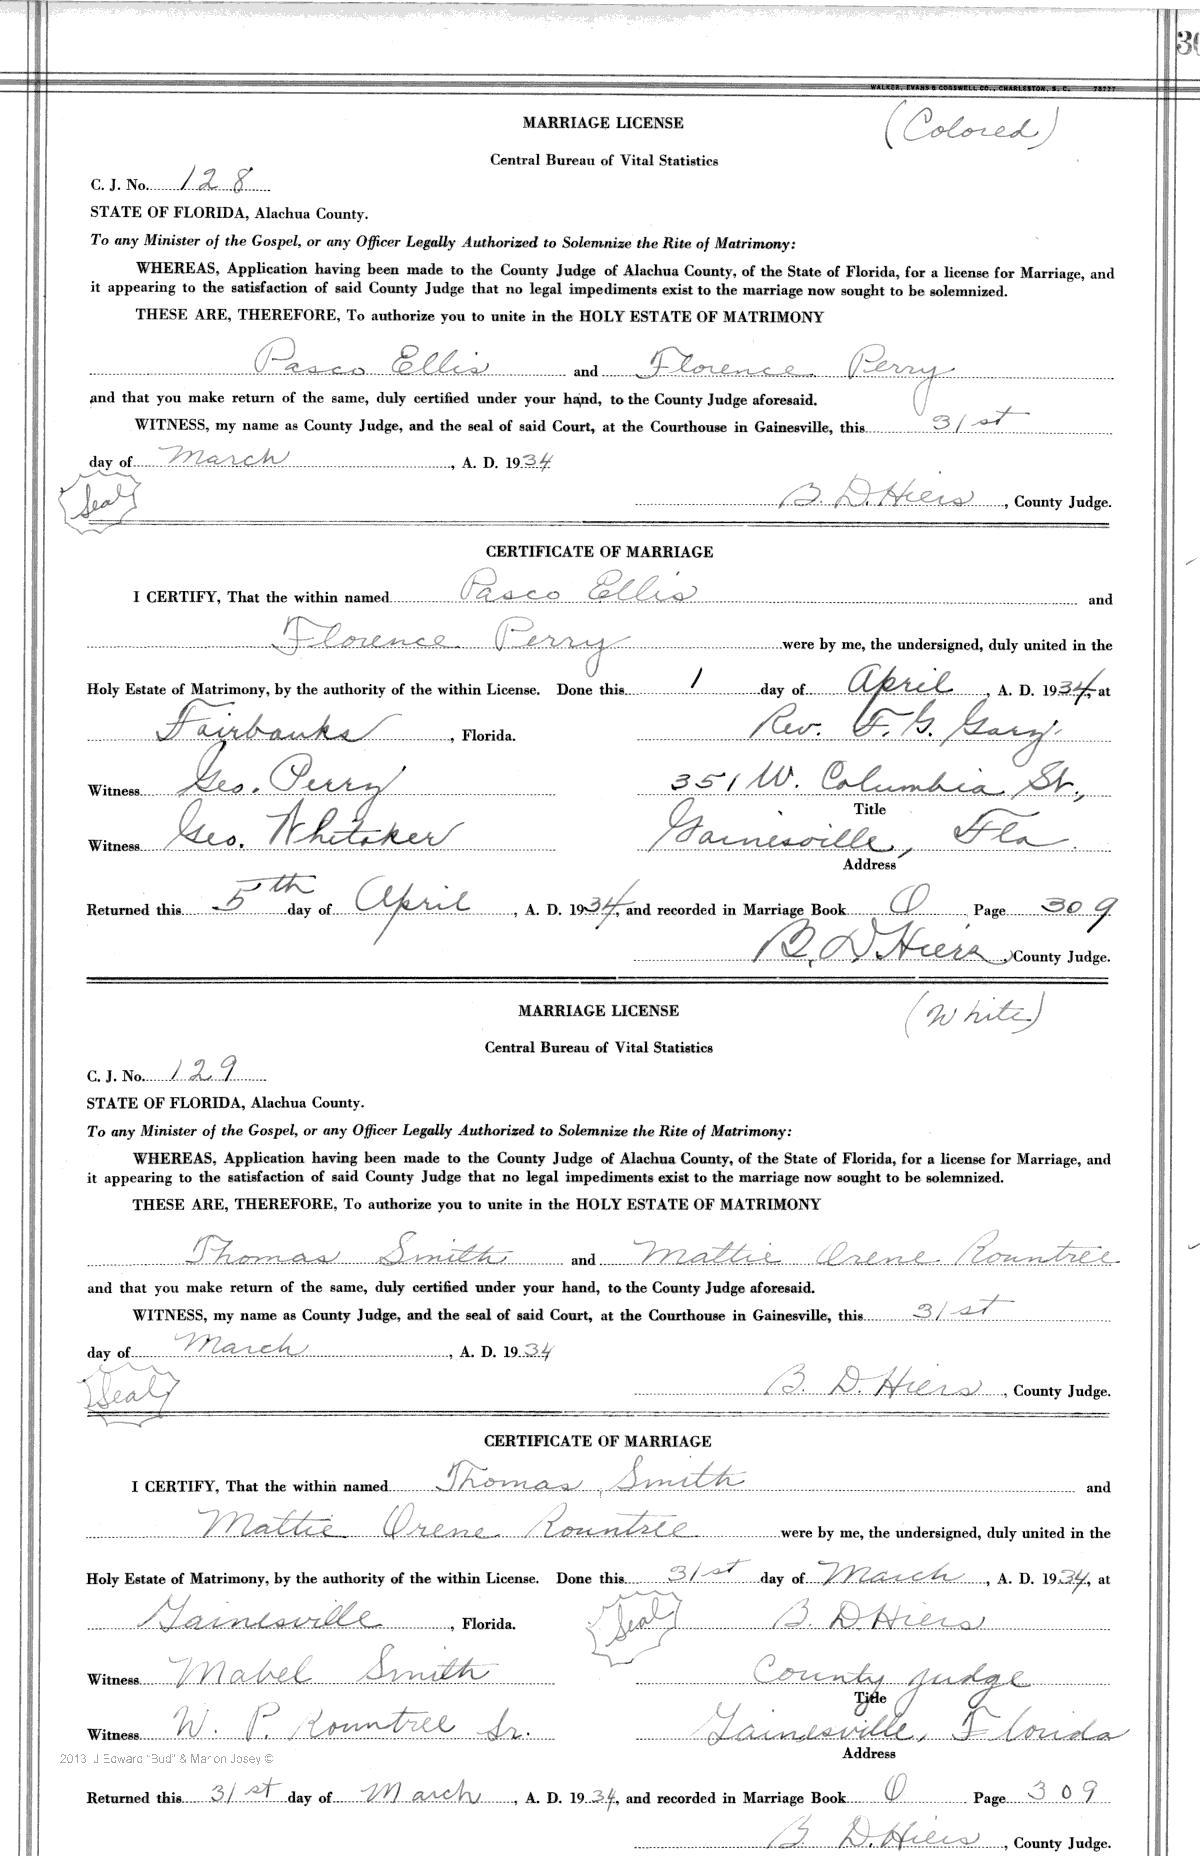 30
WALKER, EVANS & COGSWELL CO., CHARLESTON, S. C. 78777
MARRIAGE LICENSE (Colored)
Central Bureau of Vital Statistics
C. J. No. 128
STATE OF FLORIDA, Alachua County.
To any Minister of the Gospel, or any Officer Legally Authorized to Solemnize the Rite of Matrimony:
WHEREAS, Application having been made to the County Judge of Alachua County, of the State of Florida, for a license for Marriage, and
it appearing to the satisfaction of said County Judge that no legal impediments exist to the marriage now sought to be solemnized.
THESE ARE, THEREFORE, To authorize you to unite in the HOLY ESTATE OF MATRIMONY
Pasco Ellis and Florence Perry
and that you make return of the same, duly certified under your hand, to the County Judge aforesaid.
WITNESS, my name as County Judge, and the seal of said Court, at the Courthouse in Gainesville, this 31st
day of March, A. D. 1934
Seal B. D. Hiers, County Judge.
CERTIFICATE OF MARRIAGE
I CERTIFY, That the within named Pasco Ellis and
Florence Perry were by me, the undersigned, duly united in the
Holy Estate of Matrimony, by the authority of the within License. Done this 1 day of April, A. D. 1934, at
Fairbanks, Florida. Rev. F. G. Gary
Witness Geo. Perry 351 W. Columbia St.,
Title
Witness Geo. Whitaker Gainesville, Fla.
Address
Returned this 5th day of April, A. D. 1934, and recorded in Marriage Book O Page 309
B. D. Hiers, County Judge.
MARRIAGE LICENSE (White)
Central Bureau of Vital Statistics
C. J. No. 129
STATE OF FLORIDA, Alachua County.
To any Minister of the Gospel, or any Officer Legally Authorized to Solemnize the Rite of Matrimony:
WHEREAS, Application having been made to the County Judge of Alachua County, of the State of Florida, for a license for Marriage, and
it appearing to the satisfaction of said County Judge that no legal impediments exist to the marriage now sought to be solemnized.
THESE ARE, THEREFORE, To authorize you to unite in the HOLY ESTATE OF MATRIMONY
Thomas Smith and Mattie Orene Rountree
and that you make return of the same, duly certified under your hand, to the County Judge aforesaid.
WITNESS, my name as County Judge, and the seal of said Court, at the Courthouse in Gainesville, this 31st
day of March, A. D. 1934
Seal B. D. Hiers, County Judge.
CERTIFICATE OF MARRIAGE
I CERTIFY, That the within named Thomas Smith and
Mattie Orene Rountree were by me, the undersigned, duly united in the
Holy Estate of Matrimony, by the authority of the within License. Done this 31st day of March, A. D. 1934, at
Gainesville, Florida. Seal B. D. Hiers
Witness Mabel Smith County Judge
Title
Witness W. P. Rountree Sr. Gainesville, Florida
Address
2013 J Edward "Bud" & Marion Josey ©
Returned this 31st day of March, A. D. 1934, and recorded in Marriage Book O Page 309
B. D. Hiers, County Judge.